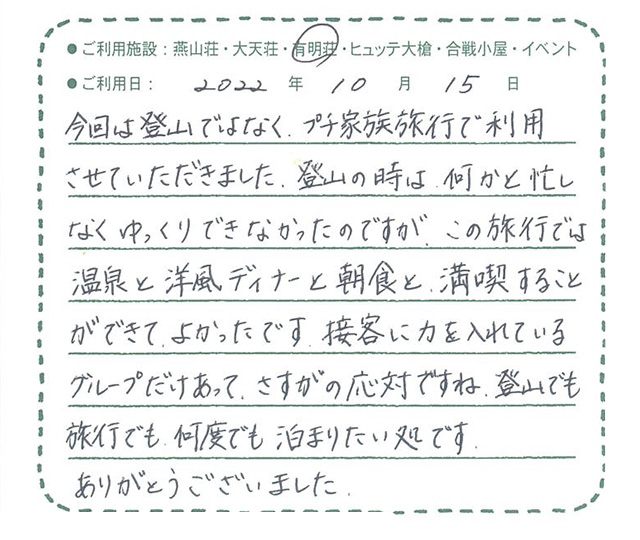 ●ご利用施設：燕山荘・大天荘・有明荘・ヒュッテ大槍・合戦小屋・イベント
●ご利用日： 2022 年 10 月 15 日
今回は登山ではなく、プチ家族旅行で利用
させていただきました。登山の時は、何かと忙し
なくゆっくりできなかったのですが、この旅行では
温泉と洋風ディナーと朝食と、満喫すること
ができて、よかったです。接客に力を入れている
グループだけあって、さすがの応対ですね。登山でも
旅行でも、何度でも泊まりたい処です。
ありがとうございました。